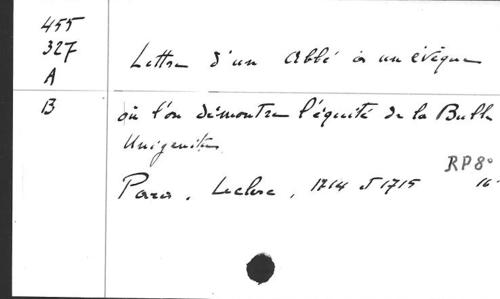 455
327
A
B
Lettre d'un Abbé à un évêque
où l'on démontre l'équité de la Bulle
Unigenitus
RP8°
Paris, Leclerc, 1714 et 1715 16°